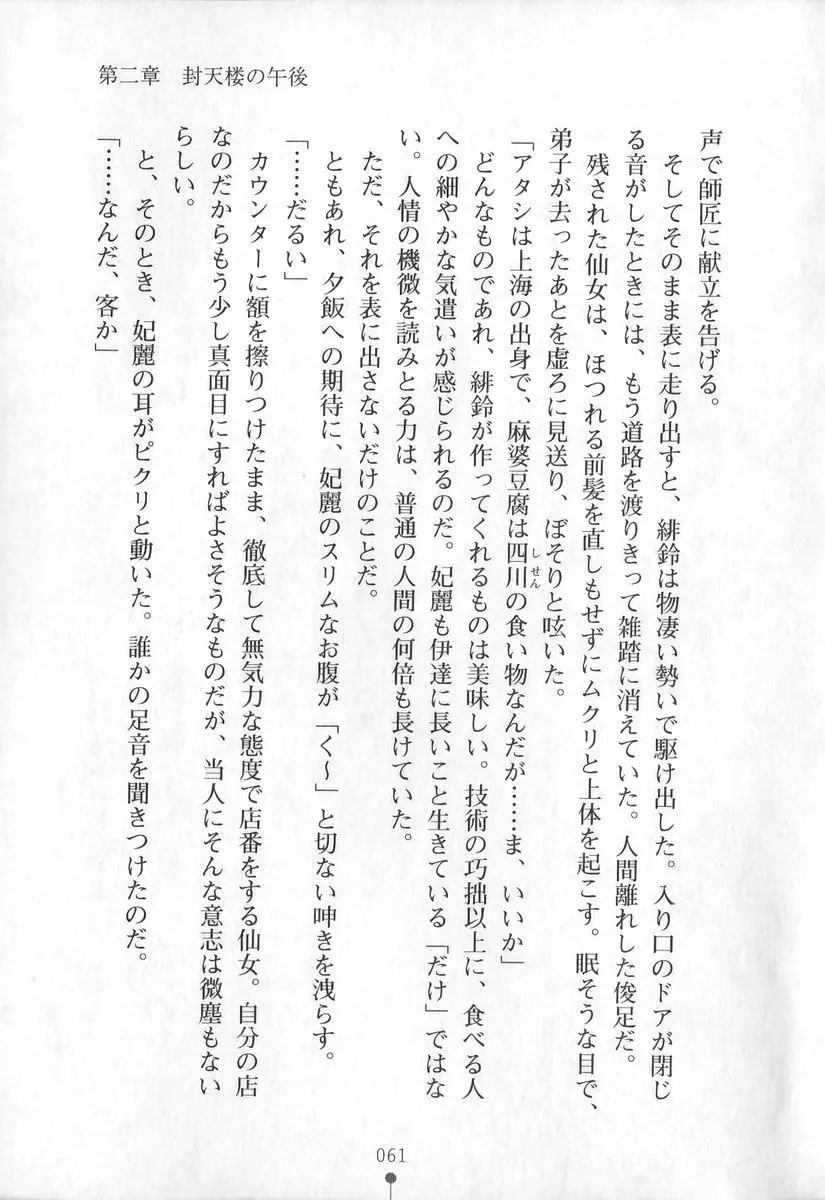 第二章　封天楼の午後
声で師匠に献立を告げる。
　そしてそのまま表に走り出すと、緋鈴は物凄い勢いで駆け出した。入り口のドアが閉じ
る音がしたときには、もう道路を渡りきって雑踏に消えていた。人間離れした俊足だ。
　残された仙女は、ほつれる前髪を直しもせずにムクリと上体を起こす。眠そうな目で、
弟子が去ったあとを虚ろに見送り、ぼそりと呟いた。
「アタシは上海の出身で、麻婆豆腐は四川の食い物なんだが……ま、いいか」
しせん
　どんなものであれ、緋鈴が作ってくれるものは美味しい。技術の巧拙以上に、食べる人
への細やかな気遣いが感じられるのだ。妃麗も伊達に長いこと生きている「だけ」ではな
い。人情の機微を読みとる力は、普通の人間の何倍も長けていた。
　ただ、それを表に出さないだけのことだ。
　ともあれ、夕飯への期待に、妃麗のスリムなお腹が「く～」と切ない呻きを洩らす。
「……だるい」
　カウンターに額を擦りつけたまま、徹底して無気力な態度で店番をする仙女。自分の店
なのだからもう少し真面目にすればよさそうなものだが、当人にそんな意志は微塵もない
らしい。
　と、そのとき、妃麗の耳がピクリと動いた。誰かの足音を聞きつけたのだ。
「……なんだ、客か」
061